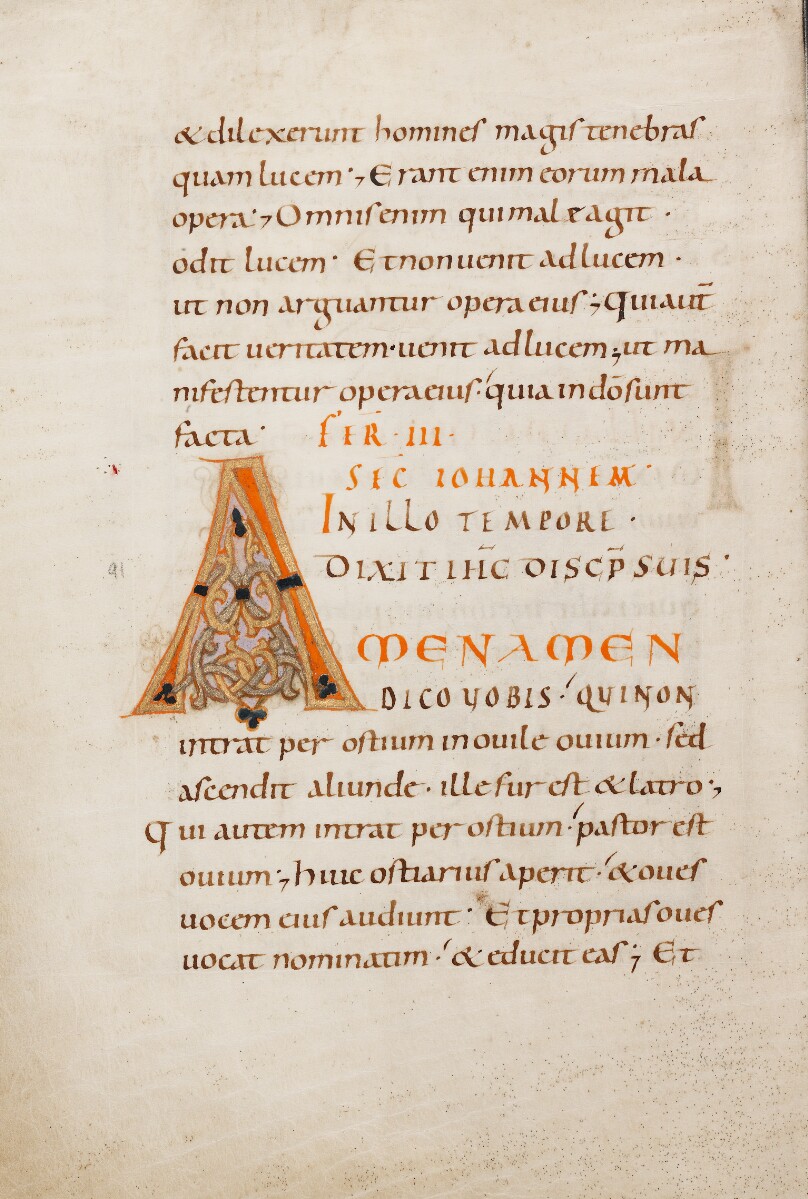 & dilexerunt homines magis tenebras
quam lucem ; Erant enim eorum mala
opera ; Omnis enim qui male agit ·
odit lucem · Et non uenit ad lucem ·
ut non arguantur opera eius ; Qui aut̄
facit ueritatem · uenit ad lucem ; ut ma
nifestentur opera eius · quia in dō sunt
facta · FER · III ·
SEC IOHANNEM ·
IN ILLO TEMPORE ·
DIXIT IH̄C DISCP̄ SUIS ·
AMEN AMEN
DICO VOBIS · QUI NON
intrat per ostium in ouile ouium · sed
ascendit aliunde · ille fur est & latro ;
Qui autem intrat per ostium · pastor est
ouium ; huic ostiarius aperit · & oues
uocem eius audiunt · Et proprias oues
uocat nominatim · & educit eas ; Et
91